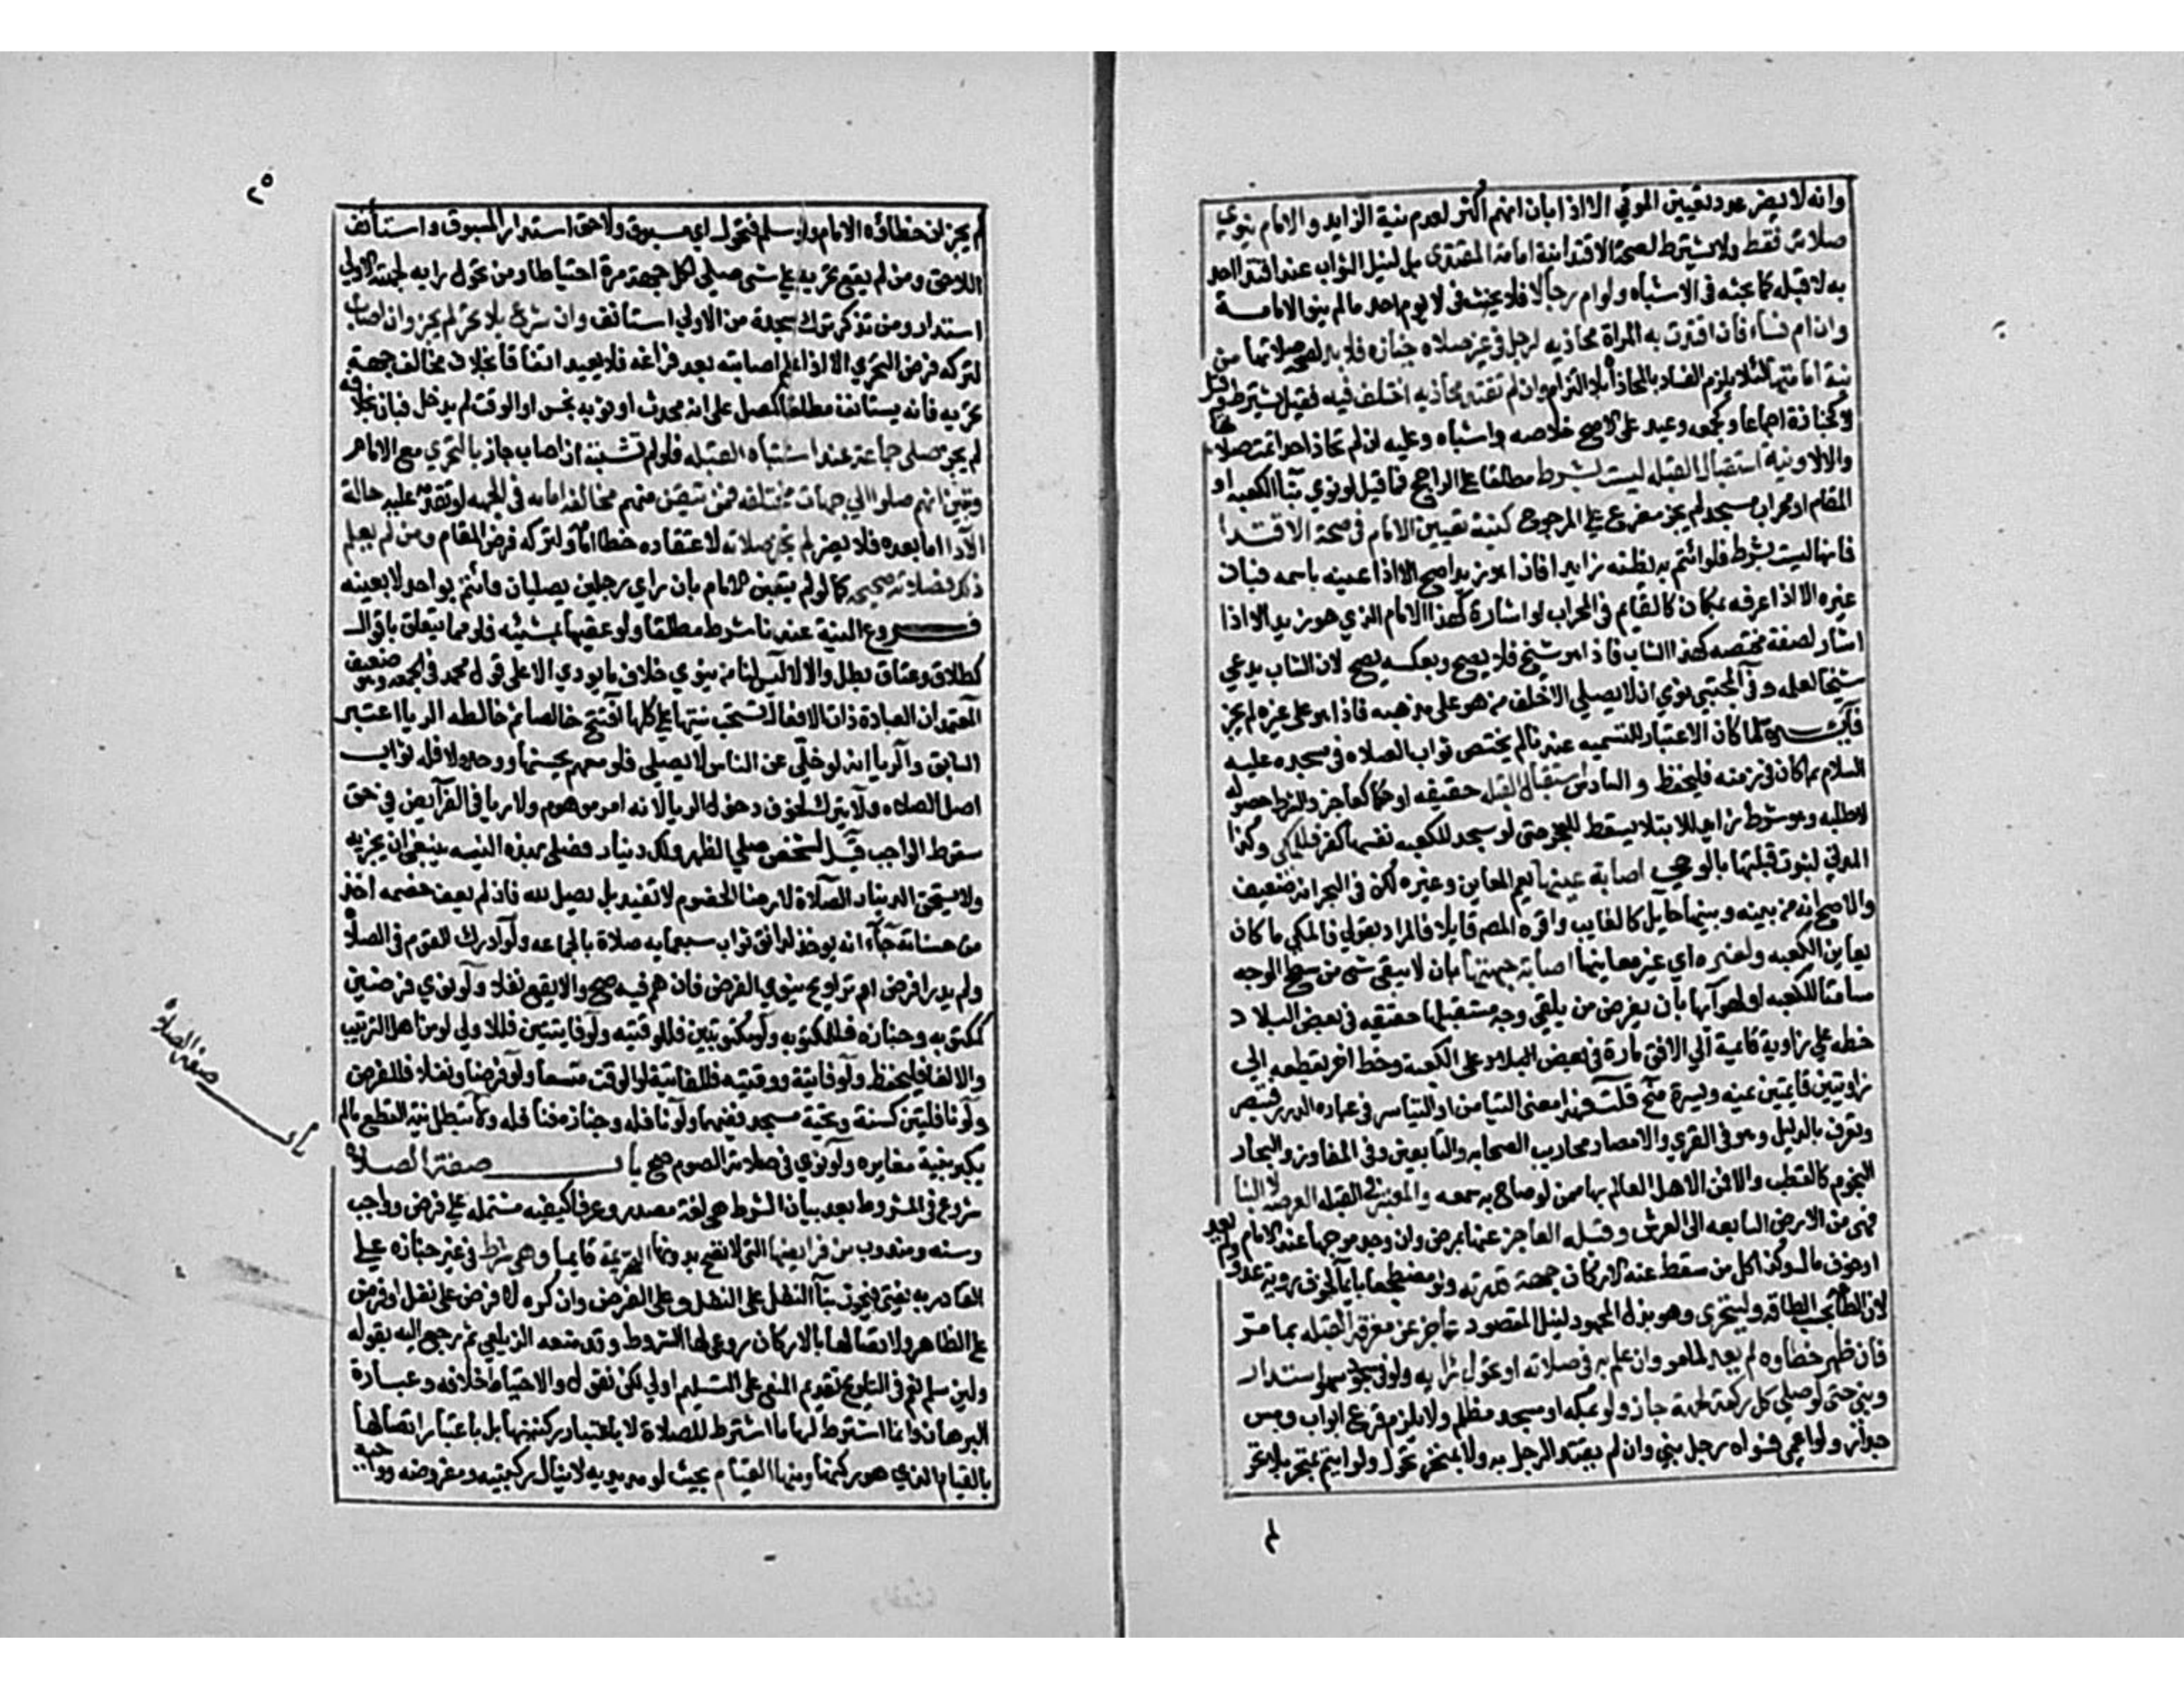 وانه لا يضر عدد تعيين الموتي الا اذا بان انهم اكثر لعدم نية الزايد والامام ينوي
صلاته فقط ولا يشترط لصحة الاقتدا نية امامة المقتدي بل لنيل الثواب عند اقتدا احد
به لا قبله كما بحثه في الاشباه ولو ام رجالا فلا يحنث في لا يوم احد ما لم ينو الامامة
وان ام نساء فان اقتدت به المراة محاذيه لرجل في غير صلاة جنازه فلا بد لصحة صلاتها من
نية امامتها لئلا يلزم الفساد بالمحاذاة بلا التزام وان لم تقتد محاذيه اختلف فيه فقيل يشترط وقيل
لا كجنازة اجماعا وكجمعه وعيد على الاصح خلاصه واشباه وعليه ان لم تحاذ احدا تمت صلاتها
والا لا ونية استقبال القبله ليست بشرط مطلقا على الراجح فما قيل لو نوي بنآ الكعبه او
المقام او محراب مسجد لم يجز مفرع علي المرجوح كنية تعيين الامام في صحة الاقتدا
فانها ليست بشرط فلو ائتم به يظنه زايدا فاذا هو بزيد صح الا اذا عينه باسمه فبان
غيره الا اذا عرفه بمكان كالقايم في المحراب او اشارة كهذا الامام الذي هو زيد الا اذا
اشار لصفة مختصه كهذا الشاب فاذا هو شيخ فلا يصح وبعكسه يصح لان الشاب يدعي
شيخا لعلمه وفي المجتبي نوي ان لا يصلي الا خلف من هو على مذهبه فاذا هو على غيره لم يجز
فايدة لما كان الاعتبار للتسميه عندنا لم يختص ثواب الصلاه في مسجده عليه
السلام بما كان في زمنه فليحفظ والسادس استقبال القبله حقيقه او حكما كعاجز والشرط حصوله
لا طلبه وهو شرط زايد للابتلا يسقط للعجز حتى لو سجد للكعبه نفسها كفر فللمكي وكذا
المدني لثبوت قبلتها بالوحي اصابة عينها يعم المعاين وغيره لكن في البحر انه ضعيف
والاصح انه من بينه وبينها حايل كالغايب واقره المص قايلا فالمراد بقولي فالمكي ما كان
يعاين الكعبه ولغيره اي غير معاينها اصابة جهتها بان لا يبقي شي من سطح الوجه
مسامتا للكعبه او لهوآيها بان يفرض من يلقي وجه مستقبلها حقيقه في بعض البلاد
خطه علي زاوية قايمة الي الافق مارة في بعض البلاد على الكعبه وخط اخر يقطعه الي
زاويتين قايمتين يمنه ويسرة منح قلت فهذا معنى التيامن او التياسر في عباره الدرر فتبصر
وتعرف بالدليل وهو في القري والامصار محاريب الصحابه والتابعين وفي المفاوز والبحار
النجوم كالقطب والا فمن الاهل العالم بها ممن لو صاح به سمعه والمعتبر في القبله العرصه لا البنا
فهي من الارض السابعه الى العرش وقبله العاجز عنها لمرض وان وجد موجها عند الامام
او خوف مال وكذا كل من سقط عنه الاركان جهة قدرته ولو مضطجعا بايمآ لخوف روية عدو ولم يعد
لان الطاعة بحسب الطاقه وليتحري وهو بذل المجهود لنيل المقصود عاجز عن معرفة القبله بما مر
فان ظهر خطاوه لم يعد لما مر وان علم به في صلاته او تحول رايه ولو في سجود سهو استدار
وبني حتي لو صلي كل ركعة لجهة جاز ولو بمكه او مسجد مظلم ولا يلزمه قرع ابواب ومس
جدار ولو اعمي فسواه رجل بني وان لم يقتد الرجل به ولا بمتحر تحول ولو ايتم بمتحر بلا تحر
٢٥
لم يجز ان خطاؤه الامام ولو سلم فتحول راي مسبوق ولاحق استدار المسبوق واستأنف
اللاحق ومن لم يقع تحريه علي شي صلي لكل جهة مرة احتياطا ومن تحول رايه لجهته الاولي
استدار ومن تذكر ترك سجدة من الاولي استأنف وان شرع بلا تحر لم يجز وان اصاب
لتركه فرض التحري الا اذا علم اصابته بعد فراغه فلا يعيد اتفاقا بخلاف مخالف جهة
تحريه فانه يستانف مطلقا كمصل على انه محدث او ثوبه نجس او الوقت لم يدخل فبان بخلافه
لم يجز صلى جماعة عند اشتباه القبله فلو لم تشتبه ان اصاب جاز بالتحري مع الامام
وتبين انهم صلوا الي جهات مختلفه فمن تيقن منهم مخالفة امامه في الجهه او تقدمه عليه حالة
الادا اما بعده فلا يضر لم تجز صلاته لاعتقاده خطا امامه ولتركه فرض المقام ومن لم يعلم
ذلك فصلاته صحيحه كما لو لم يتعين الامام بان راي رجلين يصليان فائتم بواحد لا بعينه
فروع النية عندنا شرط مطلقا ولو عقبها بمشيئه فلو مما يتعلق باقوال
كطلاق وعتاق بطل والا لا ليس لنا من ينوي خلاف ما يودي الا على قول محمد في الجمعه وهو ضعيف
المعتمد ان العبادة ذات الافعال تنسحب نيتها علي كلها افتتح خالصا ثم خالطه الريا اعتبر
السابق والريا انه لو خلي عن الناس لا يصلي فلو معهم يحسنها ووحده لا فله ثواب
اصل الصلاه ولا يترك لخوف دخول الريا لانه امر موهوم ولا ريا في الفرآيض في حق
سقوط الواجب قيل لشخص صلي الظهر ولك دينار فصلى بهذه النيه ينبغي ان يجزيه
ولا يستحق الدينار الصلاة لارضا الخصوم لا تفيد بل يصلي لله فاذ لم يعف خصمه اخذ
من حسناته جآء انه يوخذ لدانق ثواب سبعمايه صلاة بالجماعه ولو ادرك القوم في الصلاة
ولم يدر افرض ام تراويح ينوي الفرض فان هم فيه صح والا يقع نفلا ولو نوي فرضين
كمكتوبه وجنازه فللمكتوبه ولو مكتوبتين فللوقتيه ولو فايتتين فللاولي لو من اهل الترتيب
والا لغا فليحفظ ولو فايتة ووقتيه فللفايتة لو الوقت متسعا ولو فرضا ونفلا فللفرض
ولو نافلتين كسنة وتحية مسجد فعنهما ولو نافله وجنازه فنافله ولا تبطل بنية القطع ما لم
يكبر بنية مغايره ولو نوي في صلاته الصوم صح باب صفة الصلاة
شروع في المشروط بعد بيان الشرط هي لغة مصدر وعرفا كيفيه مشتمله علي فرض وواجب
وسنه ومندوب من فرايضها التي لا تصح بدونها التحريمة قايما وهي شرط في غير جنازه علي
القادر به يفتي فيجوز بنآ النفل على النفل وعلى الفرض وان كره لا فرض على نفل او فرض
علي الظاهر ولاتصالها بالاركان روعي لها الشروط وقد منعه الزيلعي ثم رجع اليه بقوله
ولين سلم نعم في التلويح تقديم المنع على التسليم اولي لكن نقول والاحتياط خلافه وعبارة
البرهان وانما اشترط لها ما اشترط للصلاة لا باعتبار ركنيتها بل باعتبار اتصالها
بالقيام الذي هو ركنها ومنها القيام بحيث لو مد يديه لا ينال ركبتيه ومفروضه وواجبه
باب صفة الصلاة